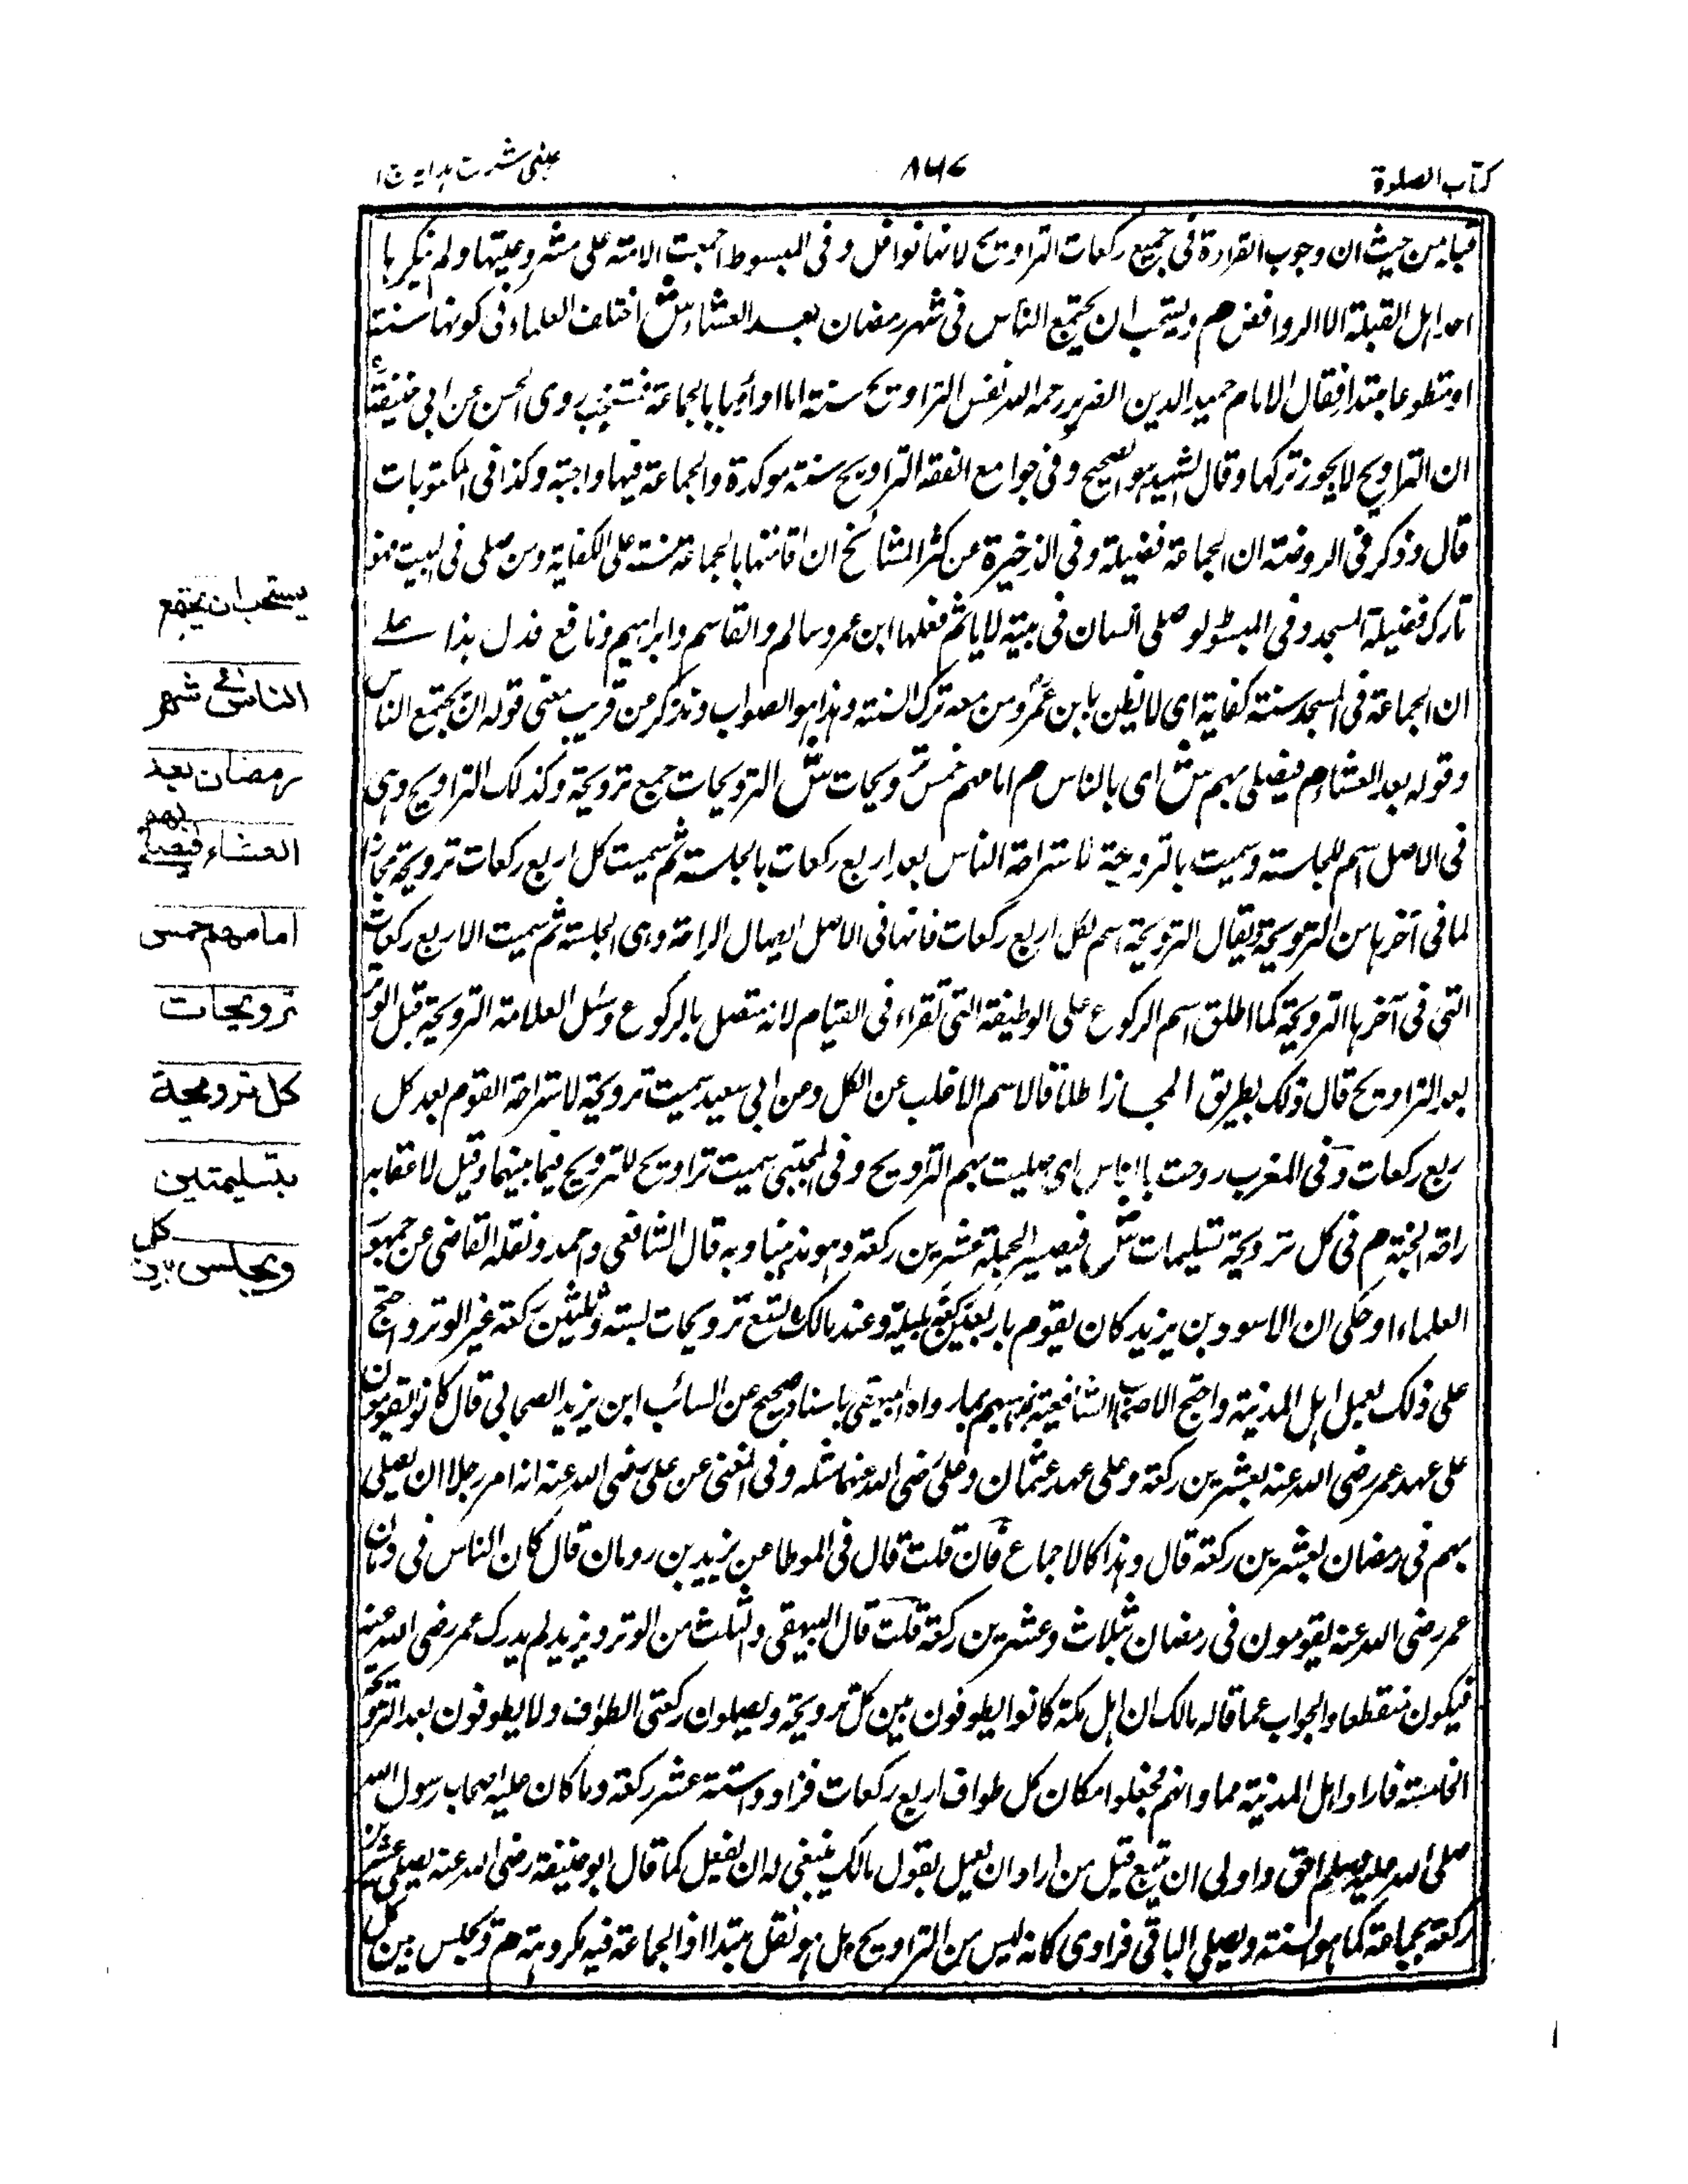 كتاب الصلوة
٨٦٧
عينى شرح هدايه ج ١
قبله من حيث ان وجوب القراءة فى جميع ركعات التراويح لانها نوافل وفى المبسوط اجمعت الامة على مشروعيتها ولم ينكرها
احد اهل القبلة الا الروافض م ويستحب ان يجتمع الناس فى شهر رمضان بعد العشاء ش اختلف العلماء فى كونها سنة
او تطوعا مبتدا فقال الامام حميد الدين الضرير رحمه الله نفس التراويح سنة اما اداؤها بالجماعة فمستحب روى الحسن عن ابى حنيفة
ان التراويح لا يجوز تركها وقال الشهيد هو الصحيح وفى جوامع الفقه التراويح سنة موكدة والجماعة فيها واجبة وكذا فى المكتوبات
قال وذكر فى الروضة ان الجماعة فضيلة وفى الذخيرة عن اكثر المشائخ ان اقامتها بالجماعة سنة على الكفاية ومن صلى فى البيت فهو
تارك فضيلة المسجد وفى المبسوط لو صلى انسان فى بيته لا ياثم فعلها ابن عمر وسالم والقاسم وابراهيم ونافع فدل هذا على
ان الجماعة فى المسجد سنة كفاية اى لا يظن بابن عمر ومن معه ترك السنة وهذا هو الصواب ونذكر من قريب معنى قوله ان يجتمع الناس
وقوله بعد العشاء م فيصلى بهم ش اى بالناس م امامهم خمس ترويحات ش الترويحات جمع ترويحة وكذلك التراويح وهى
فى الاصل اسم للجلسة وسميت بالترويحة لاستراحة الناس بعد اربع ركعات بالجلسة ثم سميت كل اربع ركعات ترويحة مجازا
لما فى آخرها من الترويحة ويقال الترويحة اسم لكل اربع ركعات فانها فى الاصل ايصال الراحة وهى الجلسة ثم سميت الاربع ركعات
التى فى آخرها الترويحة كما اطلق اسم الركوع على الوظيفة التى تقراء فى القيام لانه متصل بالركوع وسئل العلامة الترويحة قبل الوتر
بعد التراويح قال ذلك بطريق المجاز اطلاقا لاسم الاغلب عن الكل وعن ابى سعيد سميت ترويحة لاستراحة القوم بعد كل
ربع ركعات وفى المغرب روحت بالناس اى صليت بهم التراويح وفى المجتبى سميت تراويح للترويح فيما بينهما وقيل لاعقابه
راحة الجنة م فى كل ترويحة تسليمات ش فيصير الجملة عشرين ركعة وهو مذهبنا وبه قال الشافعى واحمد ونقله القاضى عن جمهور
العلماء وحكى ان الاسود بن يزيد كان يقوم باربعين ركعة بليلة وعند مالك تسع ترويحات بستة وثلثين ركعة غير الوتر واحتج
على ذلك بعمل اهل المدينة واحتج الاصحاب الشافعية بمذهبهم بما رواه البيهقى باسناد صحيح عن السائب ابن يزيد الصحابى قال كانوا يقومون
على عهد عمر رضى الله عنه بعشرين ركعة وعلى عهد عثمان وعلى رضى الله عنهما مثله وفى المغنى عن على رضى الله عنه انه امر رجلا ان يصلى
بهم فى رمضان بعشرين ركعة قال وهذا كالاجماع فان قلت قال فى الموطا عن يزيد بن رومان قال كان الناس فى زمان
عمر رضى الله عنه يقومون فى رمضان بثلاث وعشرين ركعة قلت قال البيهقى والثلث من الوتر ويزيد لم يدرك عمر رضى الله عنه
فيكون منقطعا والجواب عما قاله مالك ان اهل مكة كانوا يطوفون بين كل ترويحة ويصلون ركعتى الطواف ولا يطوفون بعد الترويحة
الخامسة فاراد اهل المدينة مساواتهم فجعلوا مكان كل طواف اربع ركعات فزادوا ستة عشر ركعة وما كان عليه اصحاب رسول الله
صلى الله عليه وسلم احق واولى ان يتبع قيل من اراد ان يعمل بقول مالك ينبغى له ان يفعل كما قال ابو حنيفة رضى الله عنه يصلى عشرين
ركعة بجماعة كما هو السنة ويصلى الباقى فرادى كانه ليس من التراويح بل هو نفل مبتدا اذ الجماعة فيه مكروهة م ويجلس بين كل
يستحب ان يجتمع
الناس فى شهر
رمضان بعد
العشاء فيصلى بهم
امامهم خمس
ترويحات
كل ترويحة
بتسليمتين
ويجلس بين كل